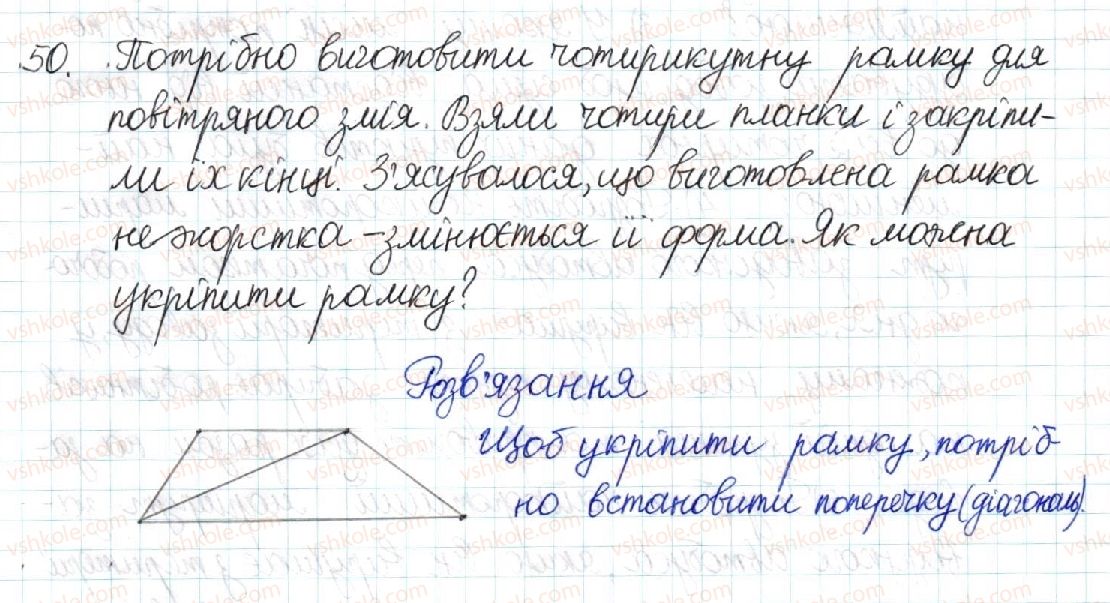 50. Потрібно виготовити чотирикутну рамку для
повітряного змія. Взяли чотири планки і закріпи-
ли їх кінці. З'ясувалося, що виготовлена рамка
не жорстка - змінюється її форма. Як можна
укріпити рамку?
Розв'язання
Щоб укріпити рамку, потріб
но встановити поперечку (діагональ).